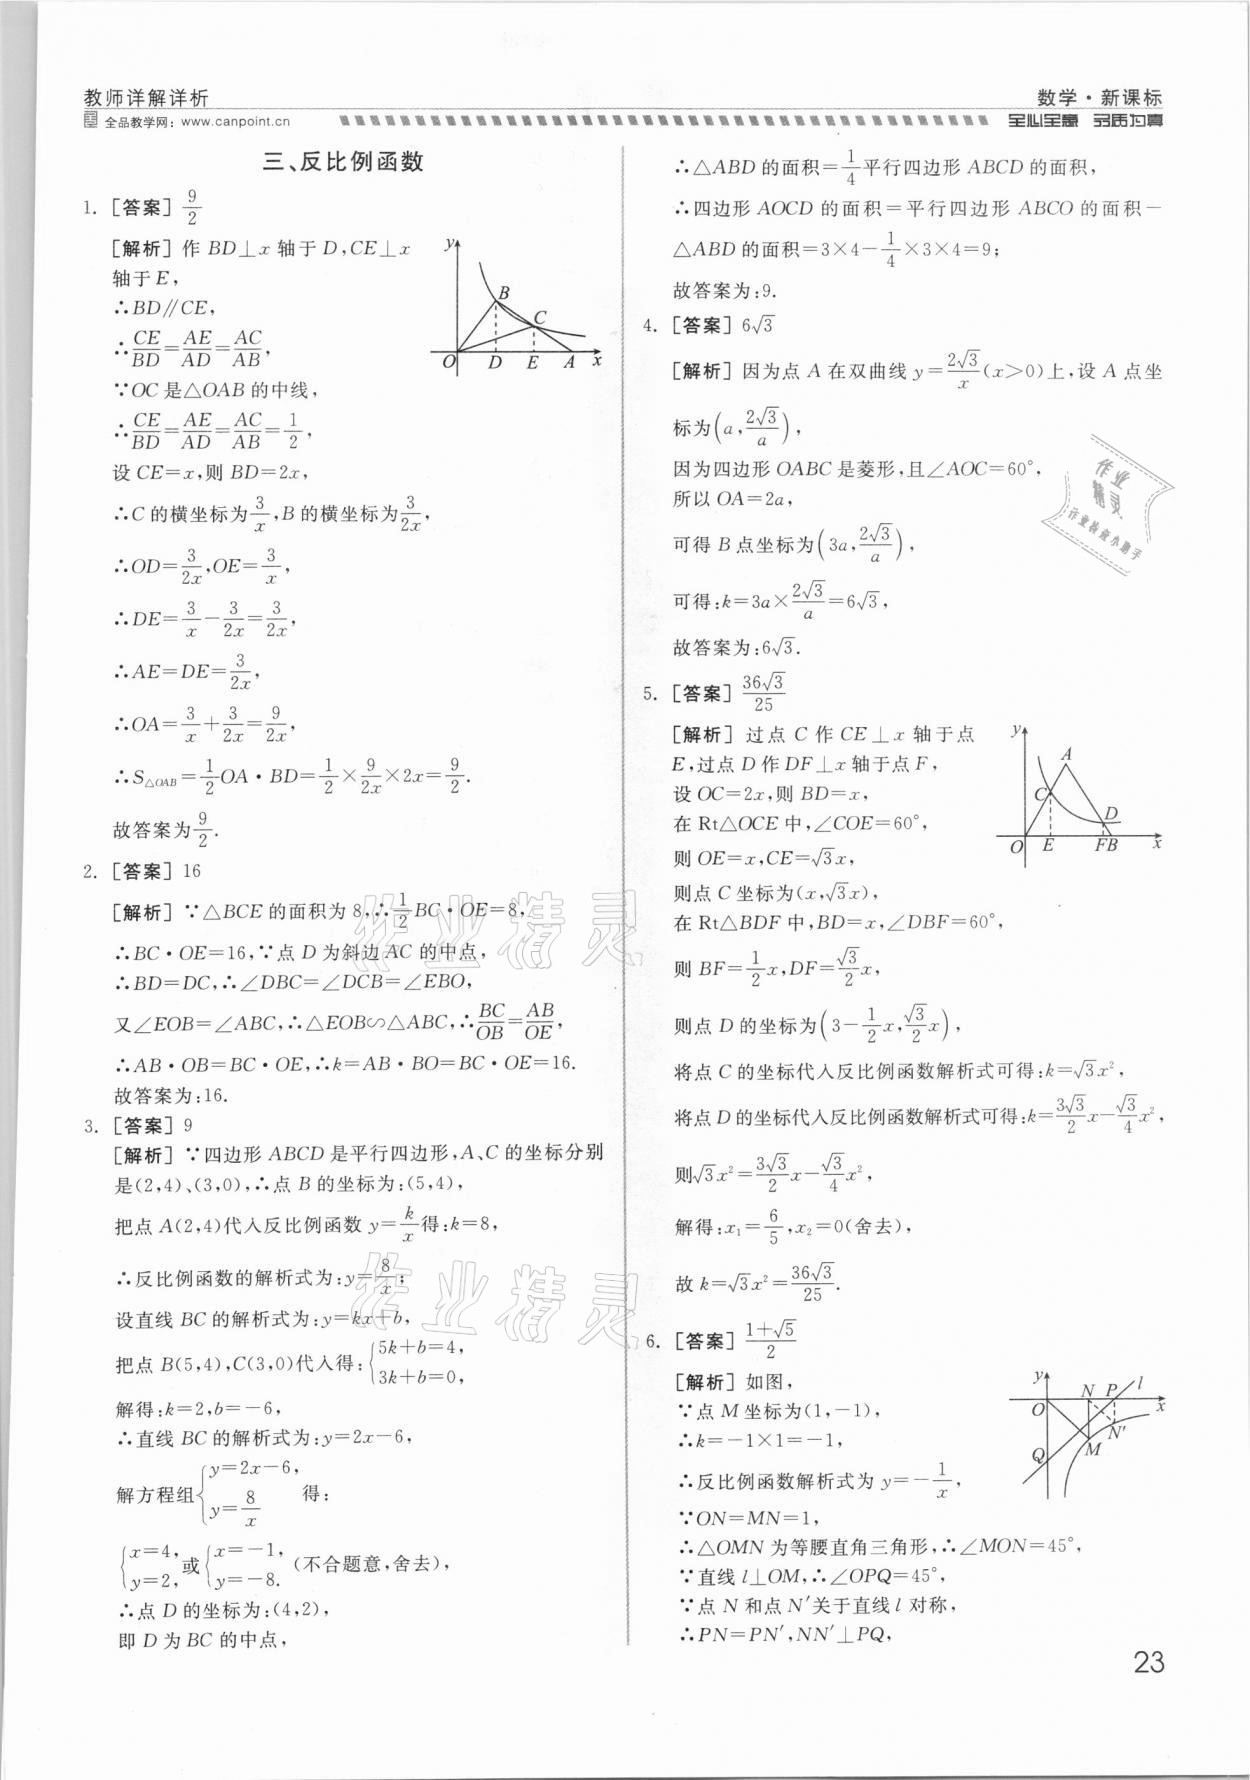 教师详解详析
数学·新课标
全品教学网：www.canpoint.cn
全心全意 品质为真
三、反比例函数
1. [答案] 9/2
[解析] 作 BD⊥x 轴于 D,CE⊥x
轴于 E,
∴BD∥CE,
∴CE/BD=AE/AD=AC/AB,
∵OC 是△OAB 的中线,
∴CE/BD=AE/AD=AC/AB=1/2,
设 CE=x,则 BD=2x,
∴C 的横坐标为3/x,B 的横坐标为3/2x,
∴OD=3/2x,OE=3/x,
∴DE=3/x-3/2x=3/2x,
∴AE=DE=3/2x,
∴OA=3/x+3/2x=9/2x,
∴S△OAB=1/2OA·BD=1/2×9/2x×2x=9/2.
故答案为9/2.
y
B
C
O D E A x
2. [答案] 16
[解析] ∵△BCE 的面积为 8,∴1/2BC·OE=8,
∴BC·OE=16,∵点 D 为斜边 AC 的中点,
∴BD=DC,∴∠DBC=∠DCB=∠EBO,
又∠EOB=∠ABC,∴△EOB∽△ABC,∴BC/OB=AB/OE,
∴AB·OB=BC·OE,∴k=AB·BO=BC·OE=16.
故答案为:16.
3. [答案] 9
[解析] ∵四边形 ABCD 是平行四边形,A、C 的坐标分别
是(2,4)、(3,0),∴点 B 的坐标为:(5,4),
把点 A(2,4)代入反比例函数 y=k/x得:k=8,
∴反比例函数的解析式为:y=8/x;
设直线 BC 的解析式为:y=kx+b,
把点 B(5,4),C(3,0)代入得:{5k+b=4,
3k+b=0,
解得:k=2,b=-6,
∴直线 BC 的解析式为:y=2x-6,
解方程组{y=2x-6,
y=8/x 得:
{x=4,
y=2,或{x=-1,
y=-8.(不合题意,舍去),
∴点 D 的坐标为:(4,2),
即 D 为 BC 的中点,
∴△ABD 的面积=1/4平行四边形 ABCD 的面积,
∴四边形 AOCD 的面积=平行四边形 ABCO 的面积-
△ABD 的面积=3×4-1/4×3×4=9;
故答案为:9.
4. [答案] 6√3
[解析] 因为点 A 在双曲线 y=2√3/x(x>0)上,设 A 点坐
标为(a,2√3/a),
因为四边形 OABC 是菱形,且∠AOC=60°,
所以 OA=2a,
可得 B 点坐标为(3a,2√3/a),
可得:k=3a×2√3/a=6√3,
故答案为:6√3.
5. [答案] 36√3/25
[解析] 过点 C 作 CE⊥x 轴于点
E,过点 D 作 DF⊥x 轴于点 F,
设 OC=2x,则 BD=x,
在 Rt△OCE 中,∠COE=60°,
则 OE=x,CE=√3x,
则点 C 坐标为(x,√3x),
在 Rt△BDF 中,BD=x,∠DBF=60°,
则 BF=1/2x,DF=√3/2x,
则点 D 的坐标为(3-1/2x,√3/2x),
将点 C 的坐标代入反比例函数解析式可得:k=√3x²,
将点 D 的坐标代入反比例函数解析式可得:k=3√3/2x-√3/4x²,
则√3x²=3√3/2x-√3/4x²,
解得:x₁=6/5,x₂=0(舍去),
故 k=√3x²=36√3/25.
y
A
C
D
O E FB x
6. [答案] 1+√5/2
[解析] 如图,
∵点 M 坐标为(1,-1),
∴k=-1×1=-1,
∴反比例函数解析式为 y=-1/x,
∵ON=MN=1,
∴△OMN 为等腰直角三角形,∴∠MON=45°,
∵直线 l⊥OM,∴∠OPQ=45°,
∵点 N 和点 N′关于直线 l 对称,
∴PN=PN′,NN′⊥PQ,
y N P l
O x
N′
Q M
作业精灵
作业检查小助手
作业精灵
作业精灵
23